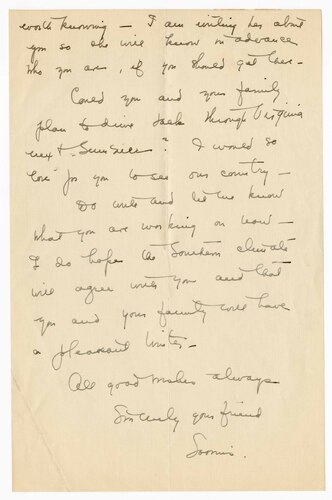 worth knowing — I am writing her about
you so she will know in advance
who you are, if you should get there —
Could you and your family
plan to drive back through Virginia
next summer? I would so
love for you to see our country —
Do write and let me know
what you are working on now —
I do hope the Southern climate
will agree with you and that
you and your family will have
a pleasant winter —
All good wishes always
Sincerely your friend